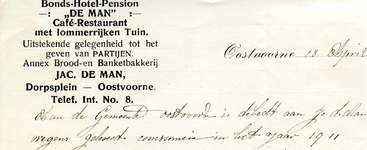 Bonds-Hotel-Pension
—: „DE MAN” :—
Café-Restaurant
met lommerrijken Tuin.
Uitstekende gelegenheid tot het
geven van PARTIJEN.
Annex Brood- en Banketbakkerij
JAC. DE MAN,
Dorpsplein — Oostvoorne.
Telef. Int. No. 8.
Oostvoorne 18 April
Aan de Gemeente oostvoorn is debedt aan J. d. Man
wegens geleverde consumcie in het jaar 1911